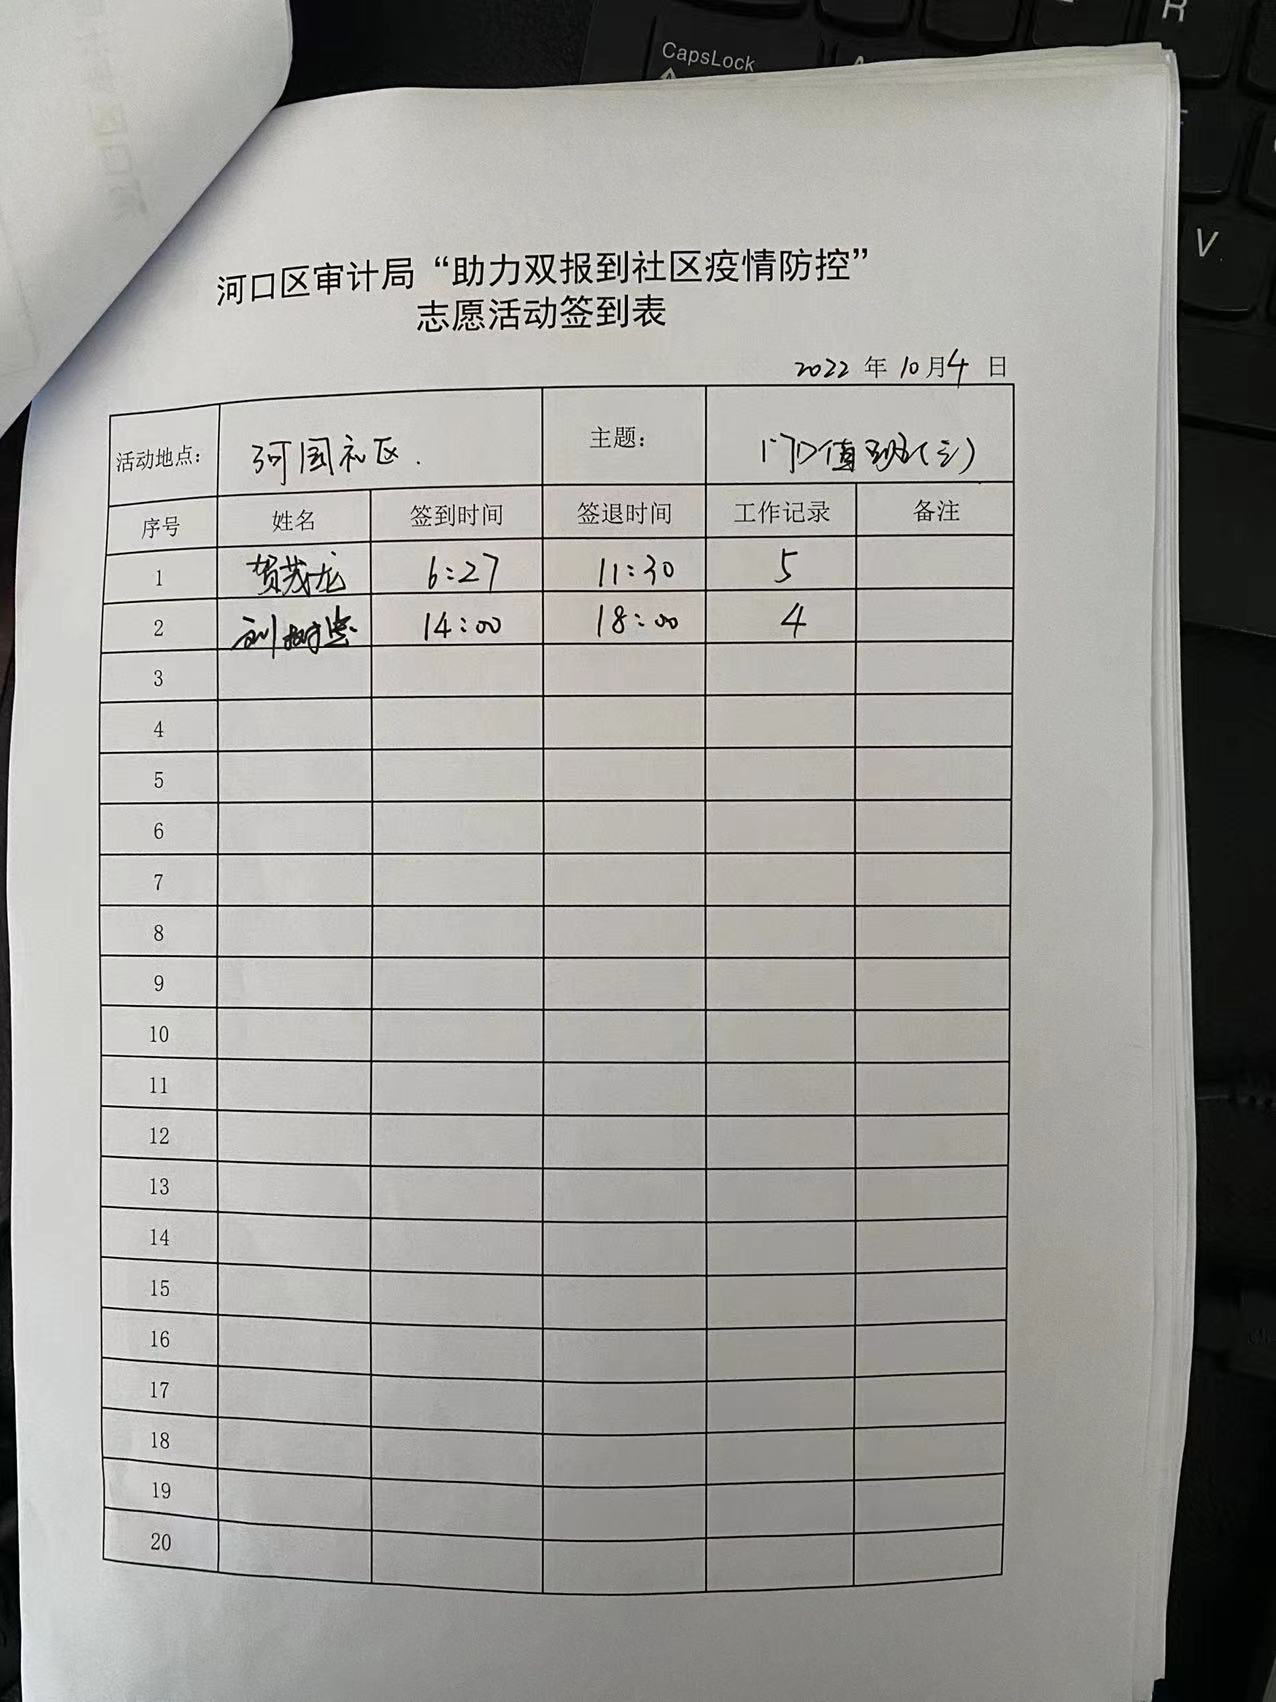 CapsLock
R
V
河口区审计局“助力双报到社区疫情防控”
志愿活动签到表
2022 年 10月4 日
活动地点: 河园社区. 主题: 门口值班(三)
序号 姓名 签到时间 签退时间 工作记录 备注
1 贺茂龙 6:27 11:30 5
2 刘树忠 14:00 18:00 4
3
4
5
6
7
8
9
10
11
12
13
14
15
16
17
18
19
20